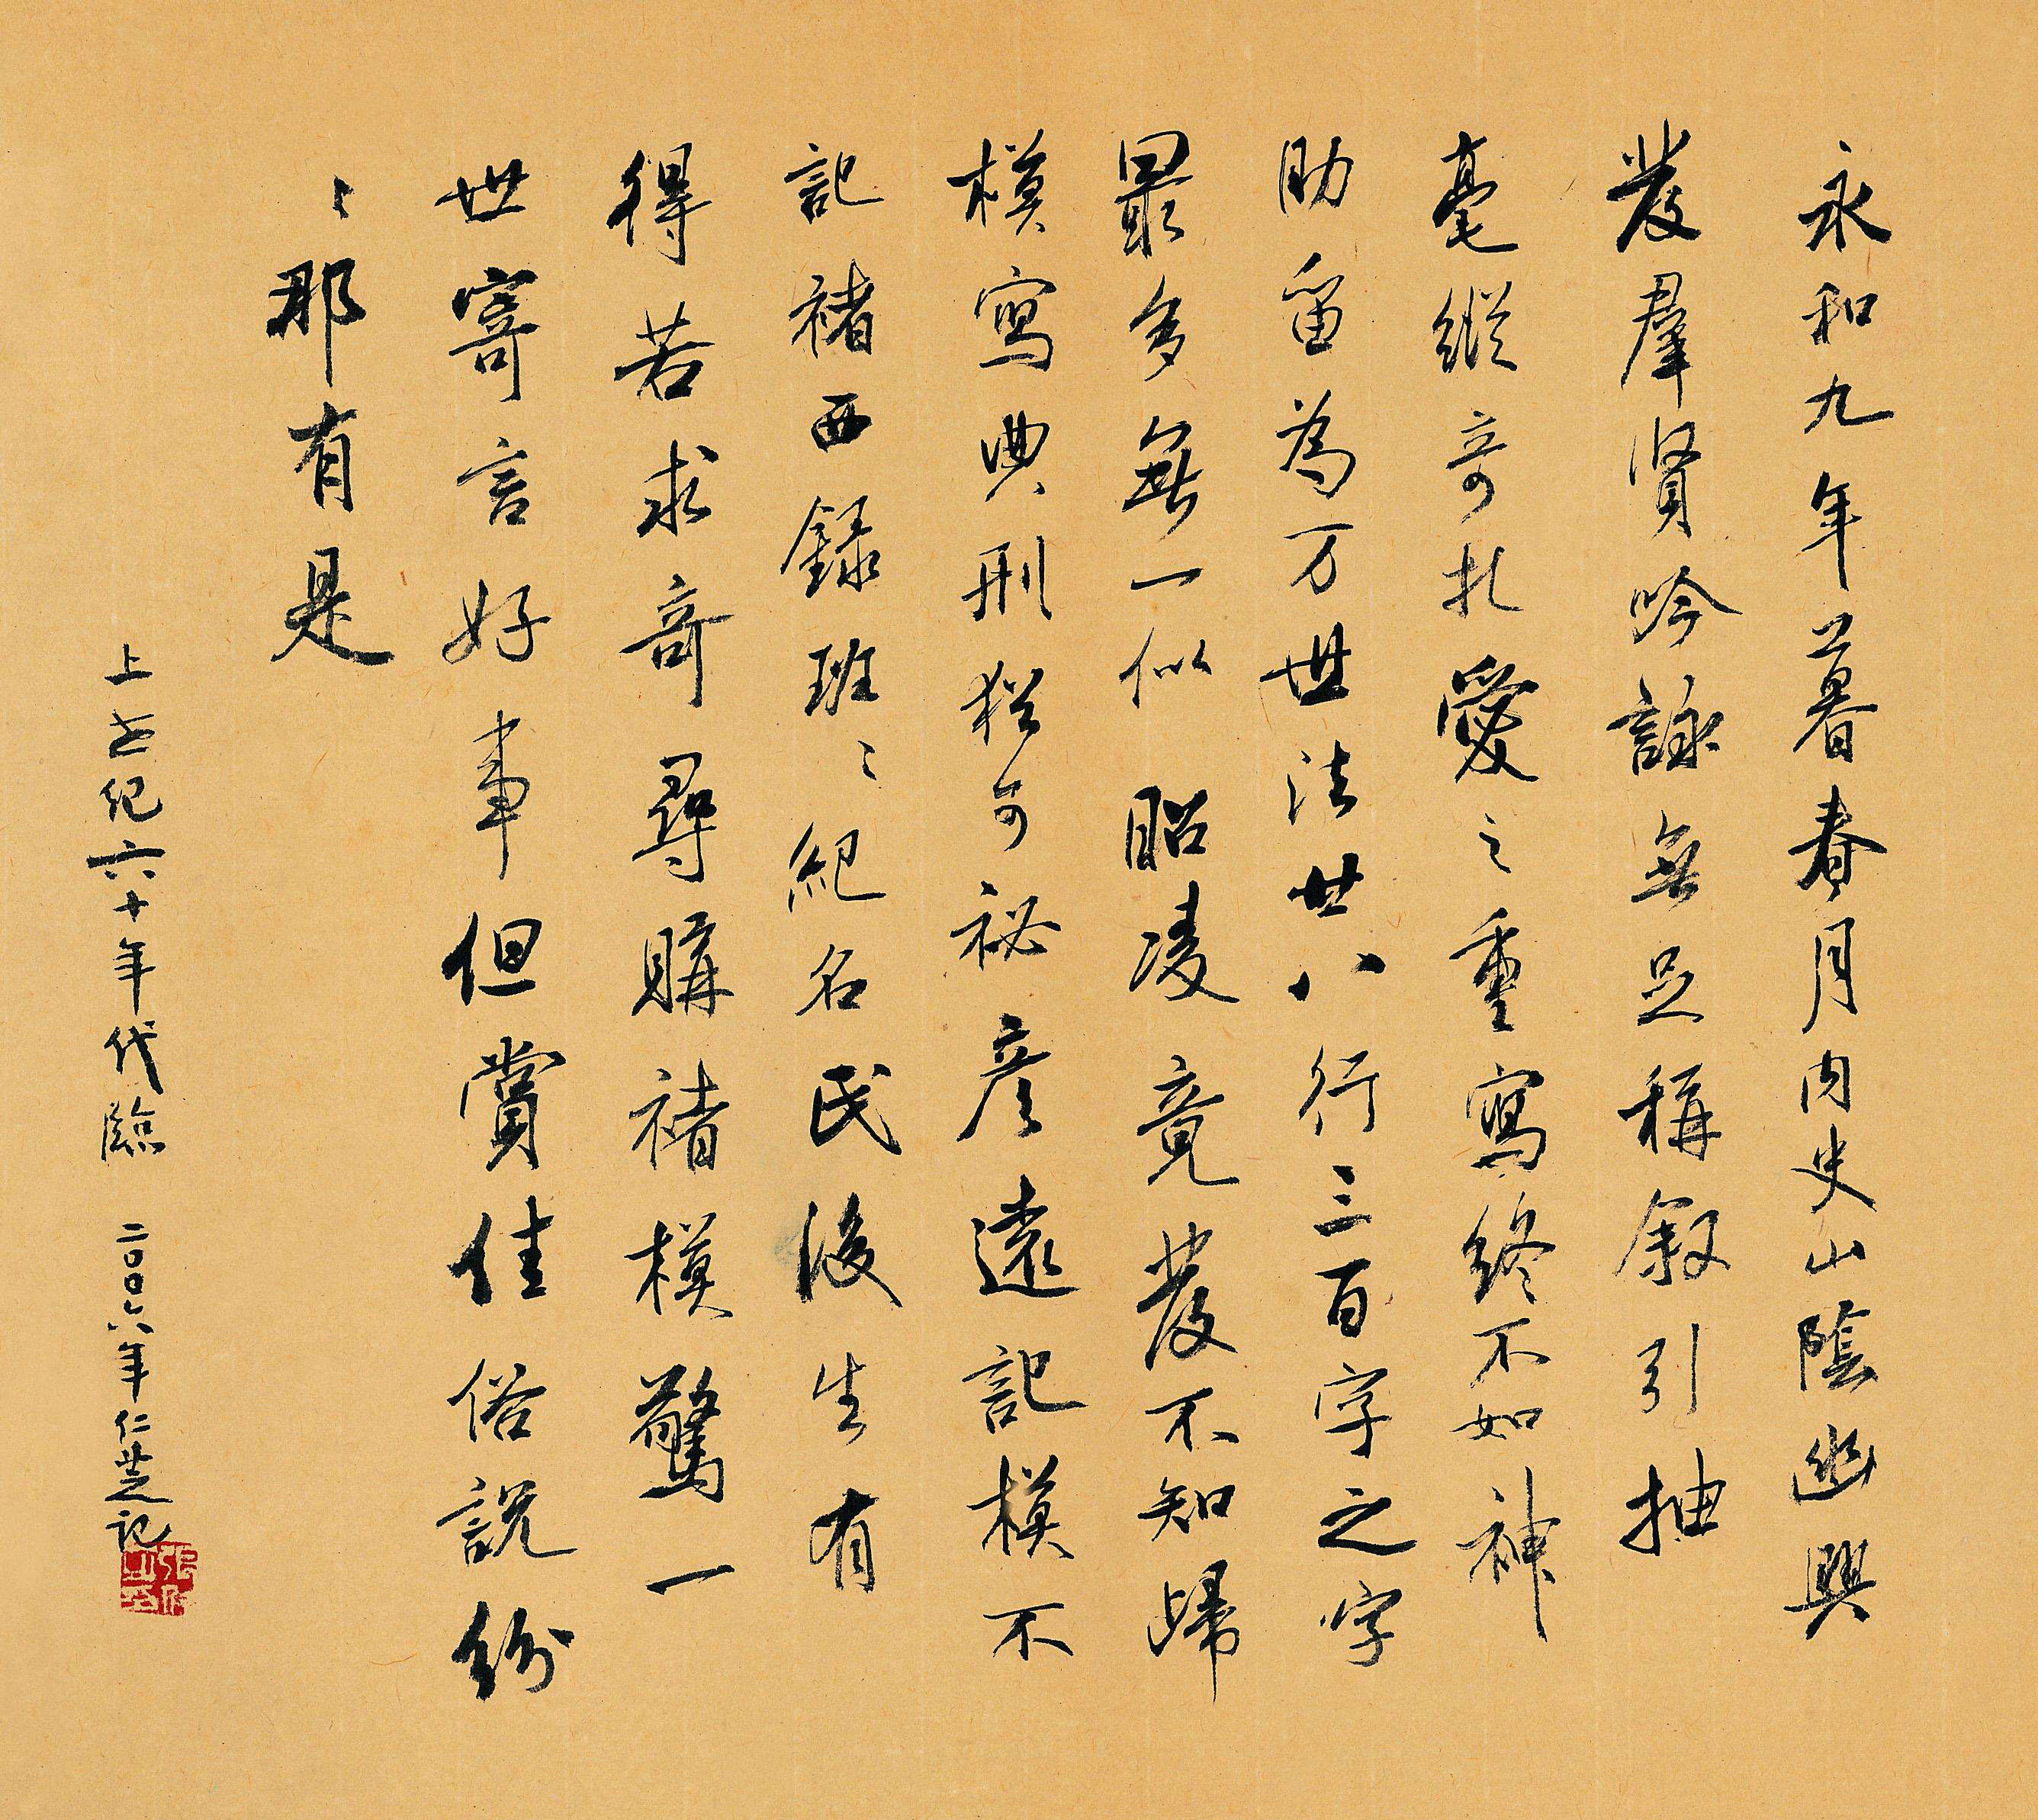 永和九年暮春月內史山陰幽興
發羣賢吟詠無足稱叙引抽
毫縱奇札愛之重寫終不如神
助留為万世法廿八行三百字之字
最多無一似昭陵竟發不知歸
模寫典刑猶可祕彥遠記模不
記褚西錄班〻紀名氏後生有
得若求奇尋購褚模驚一
世寄言好事但賞佳俗說紛
〻那有是
上世紀六十年代臨 二〇〇六年仁芝記